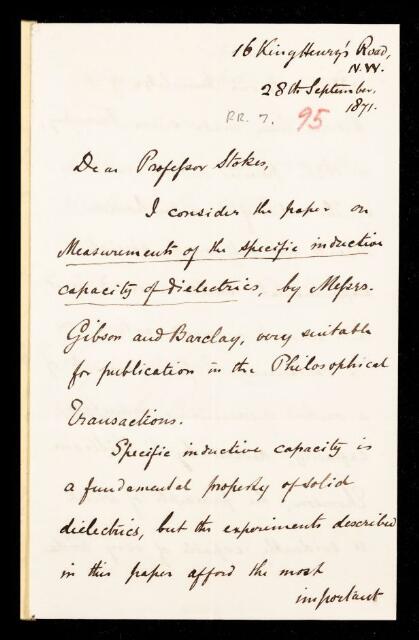 16 King Henry's Road,
N.W.
28th September,
1871.
RR. 7. 95
Dear Professor Stokes,
I consider the paper on
Measurements of the specific inductive
capacity of dielectrics, by Messrs.
Gibson and Barclay, very suitable
for publication in the Philosophical
Transactions.
Specific inductive capacity is
a fundamental property of solid
dielectrics, but the experiments described
in this paper afford the most
important